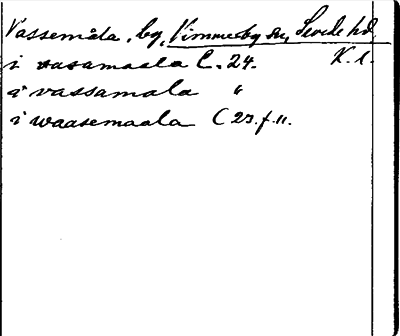 Vassemåla, by, Vimmerby sn, Sevede hd,
i vasamaala C. 24. K. l.
i vassamala "
i waasemaala C 23. f. 11.